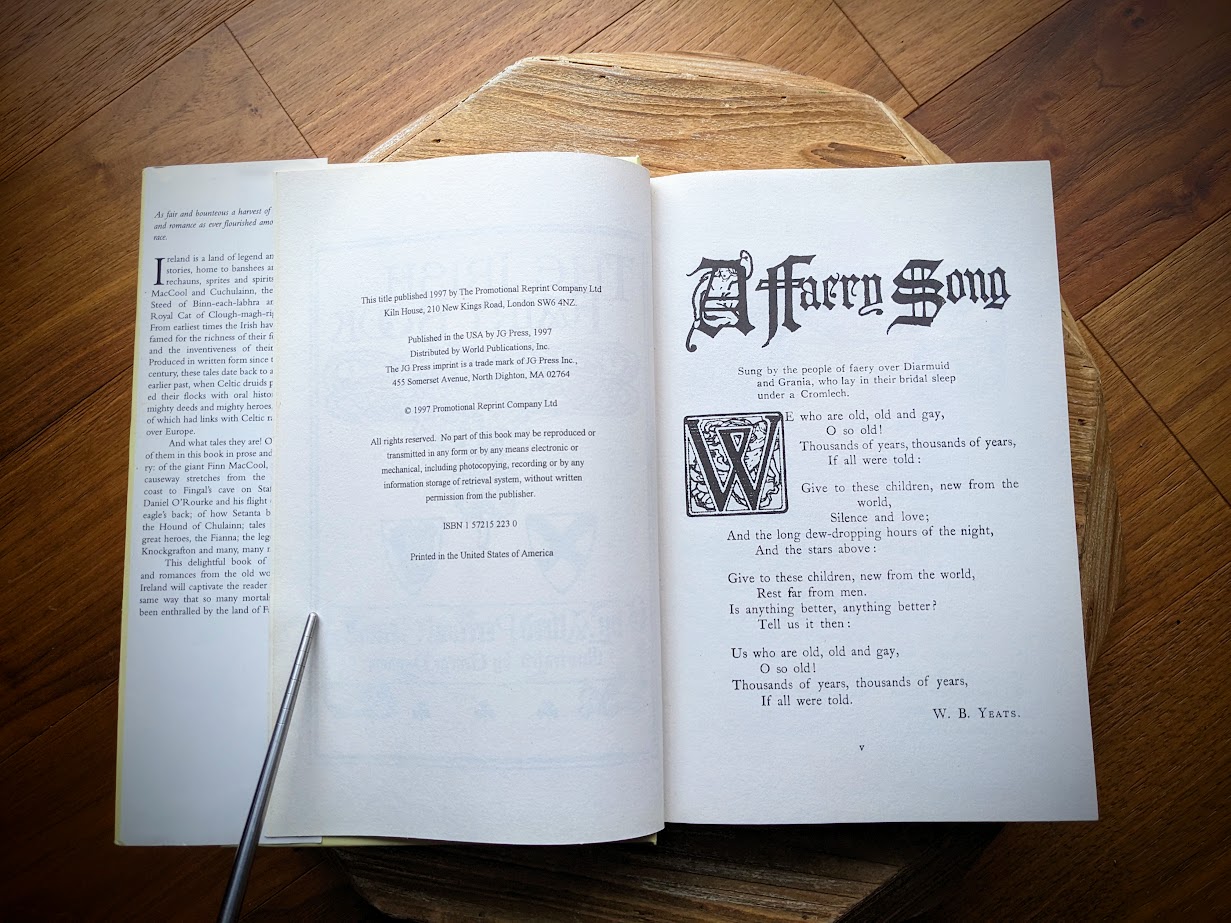 As fair and bounteous a harvest of
and romance as ever flourished
race.
Ireland is a land of legend
stories, home to banshees
rechauns, sprites and
MacCool and Cuchulainn, the
Steed of Binn-each-labhra
Royal Cat of
From earliest times the Irish have
famed for the richness of their
and the inventiveness of their
Produced in written form since
century, these tales date back to
earlier past, when Celtic druids
ed their flocks with oral
mighty deeds and mighty heroes,
of which had links with Celtic
over Europe.
And what tales they are!
of them in this book in prose and
ry: of the giant Finn MacCool,
causeway stretches from the
coast to Fingal's cave on
Daniel O'Rourke and his flight
eagle's back; of how Setanta
the Hound of Chulainn; tales
great heroes, the Fianna; the
Knockgrafton and many, many
This delightful book of
and romances from the old
Ireland will captivate the reader
same way that so many
been enthralled by the land of
This title published 1997 by The Promotional Reprint Company Ltd
Kiln House, 210 New Kings Road, London SW6 4NZ.
Published in the USA by JG Press, 1997
Distributed by World Publications, Inc.
The JG Press imprint is a trade mark of JG Press Inc.,
455 Somerset Avenue, North Dighton, MA 02764
© 1997 Promotional Reprint Company Ltd
All rights reserved. No part of this book may be reproduced or
transmitted in any form or by any means electronic or
mechanical, including photocopying, recording or by any
information storage of retrieval system, without written
permission from the publisher.
ISBN 1 57215 223 0
Printed in the United States of America
A Faery Song
Sung by the people of faery over Diarmuid
and Grania, who lay in their bridal sleep
under a Cromlech.
WE who are old, old and gay,
O so old!
Thousands of years, thousands of years,
If all were told:
Give to these children, new from the
world,
Silence and love;
And the long dew-dropping hours of the night,
And the stars above:
Give to these children, new from the world,
Rest far from men.
Is anything better, anything better?
Tell us it then:
Us who are old, old and gay,
O so old!
Thousands of years, thousands of years,
If all were told.
W. B. YEATS.
v